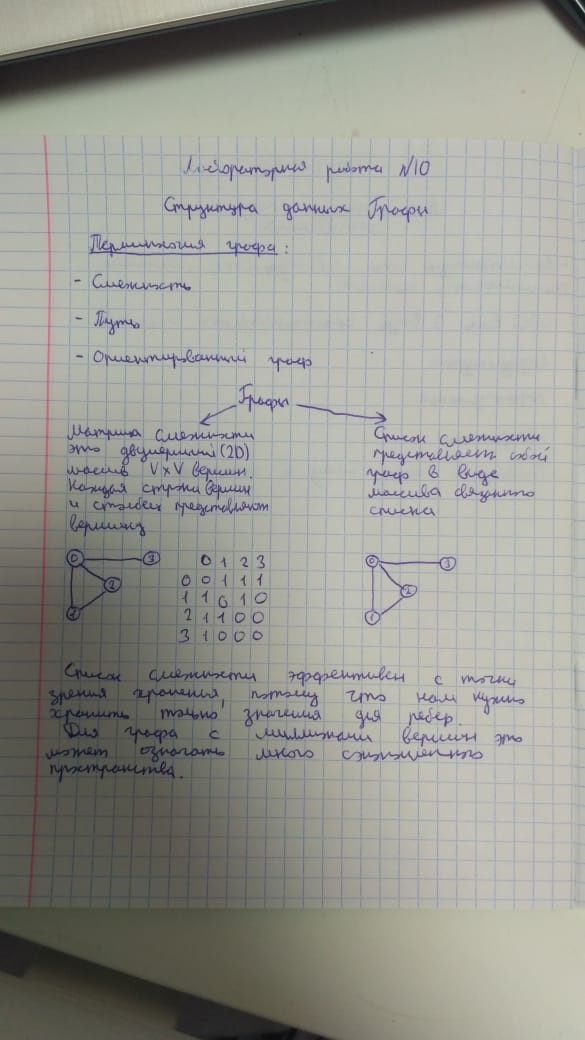 Лабораторная работа №10
Структура данных Графы
Терминология графа:
- Смежность
- Путь
- Ориентированный граф
Графы
Матрица смежности
это двумерный (2D)
массив V x V вершин.
Каждая строка вершин
и столбец представляют
вершину
Список смежности
представляет собой
граф в виде
массива связанного
списка
0 3
2
1
0 1 2 3
0 0 1 1 1
1 1 0 1 0
2 1 1 0 0
3 1 0 0 0
0 3
2
1
Список смежности эффективен с точки
зрения хранения, потому что нам нужно
хранить только значения для ребер.
Для графа с миллионами вершин это
может означать много сэкономленного
пространства.